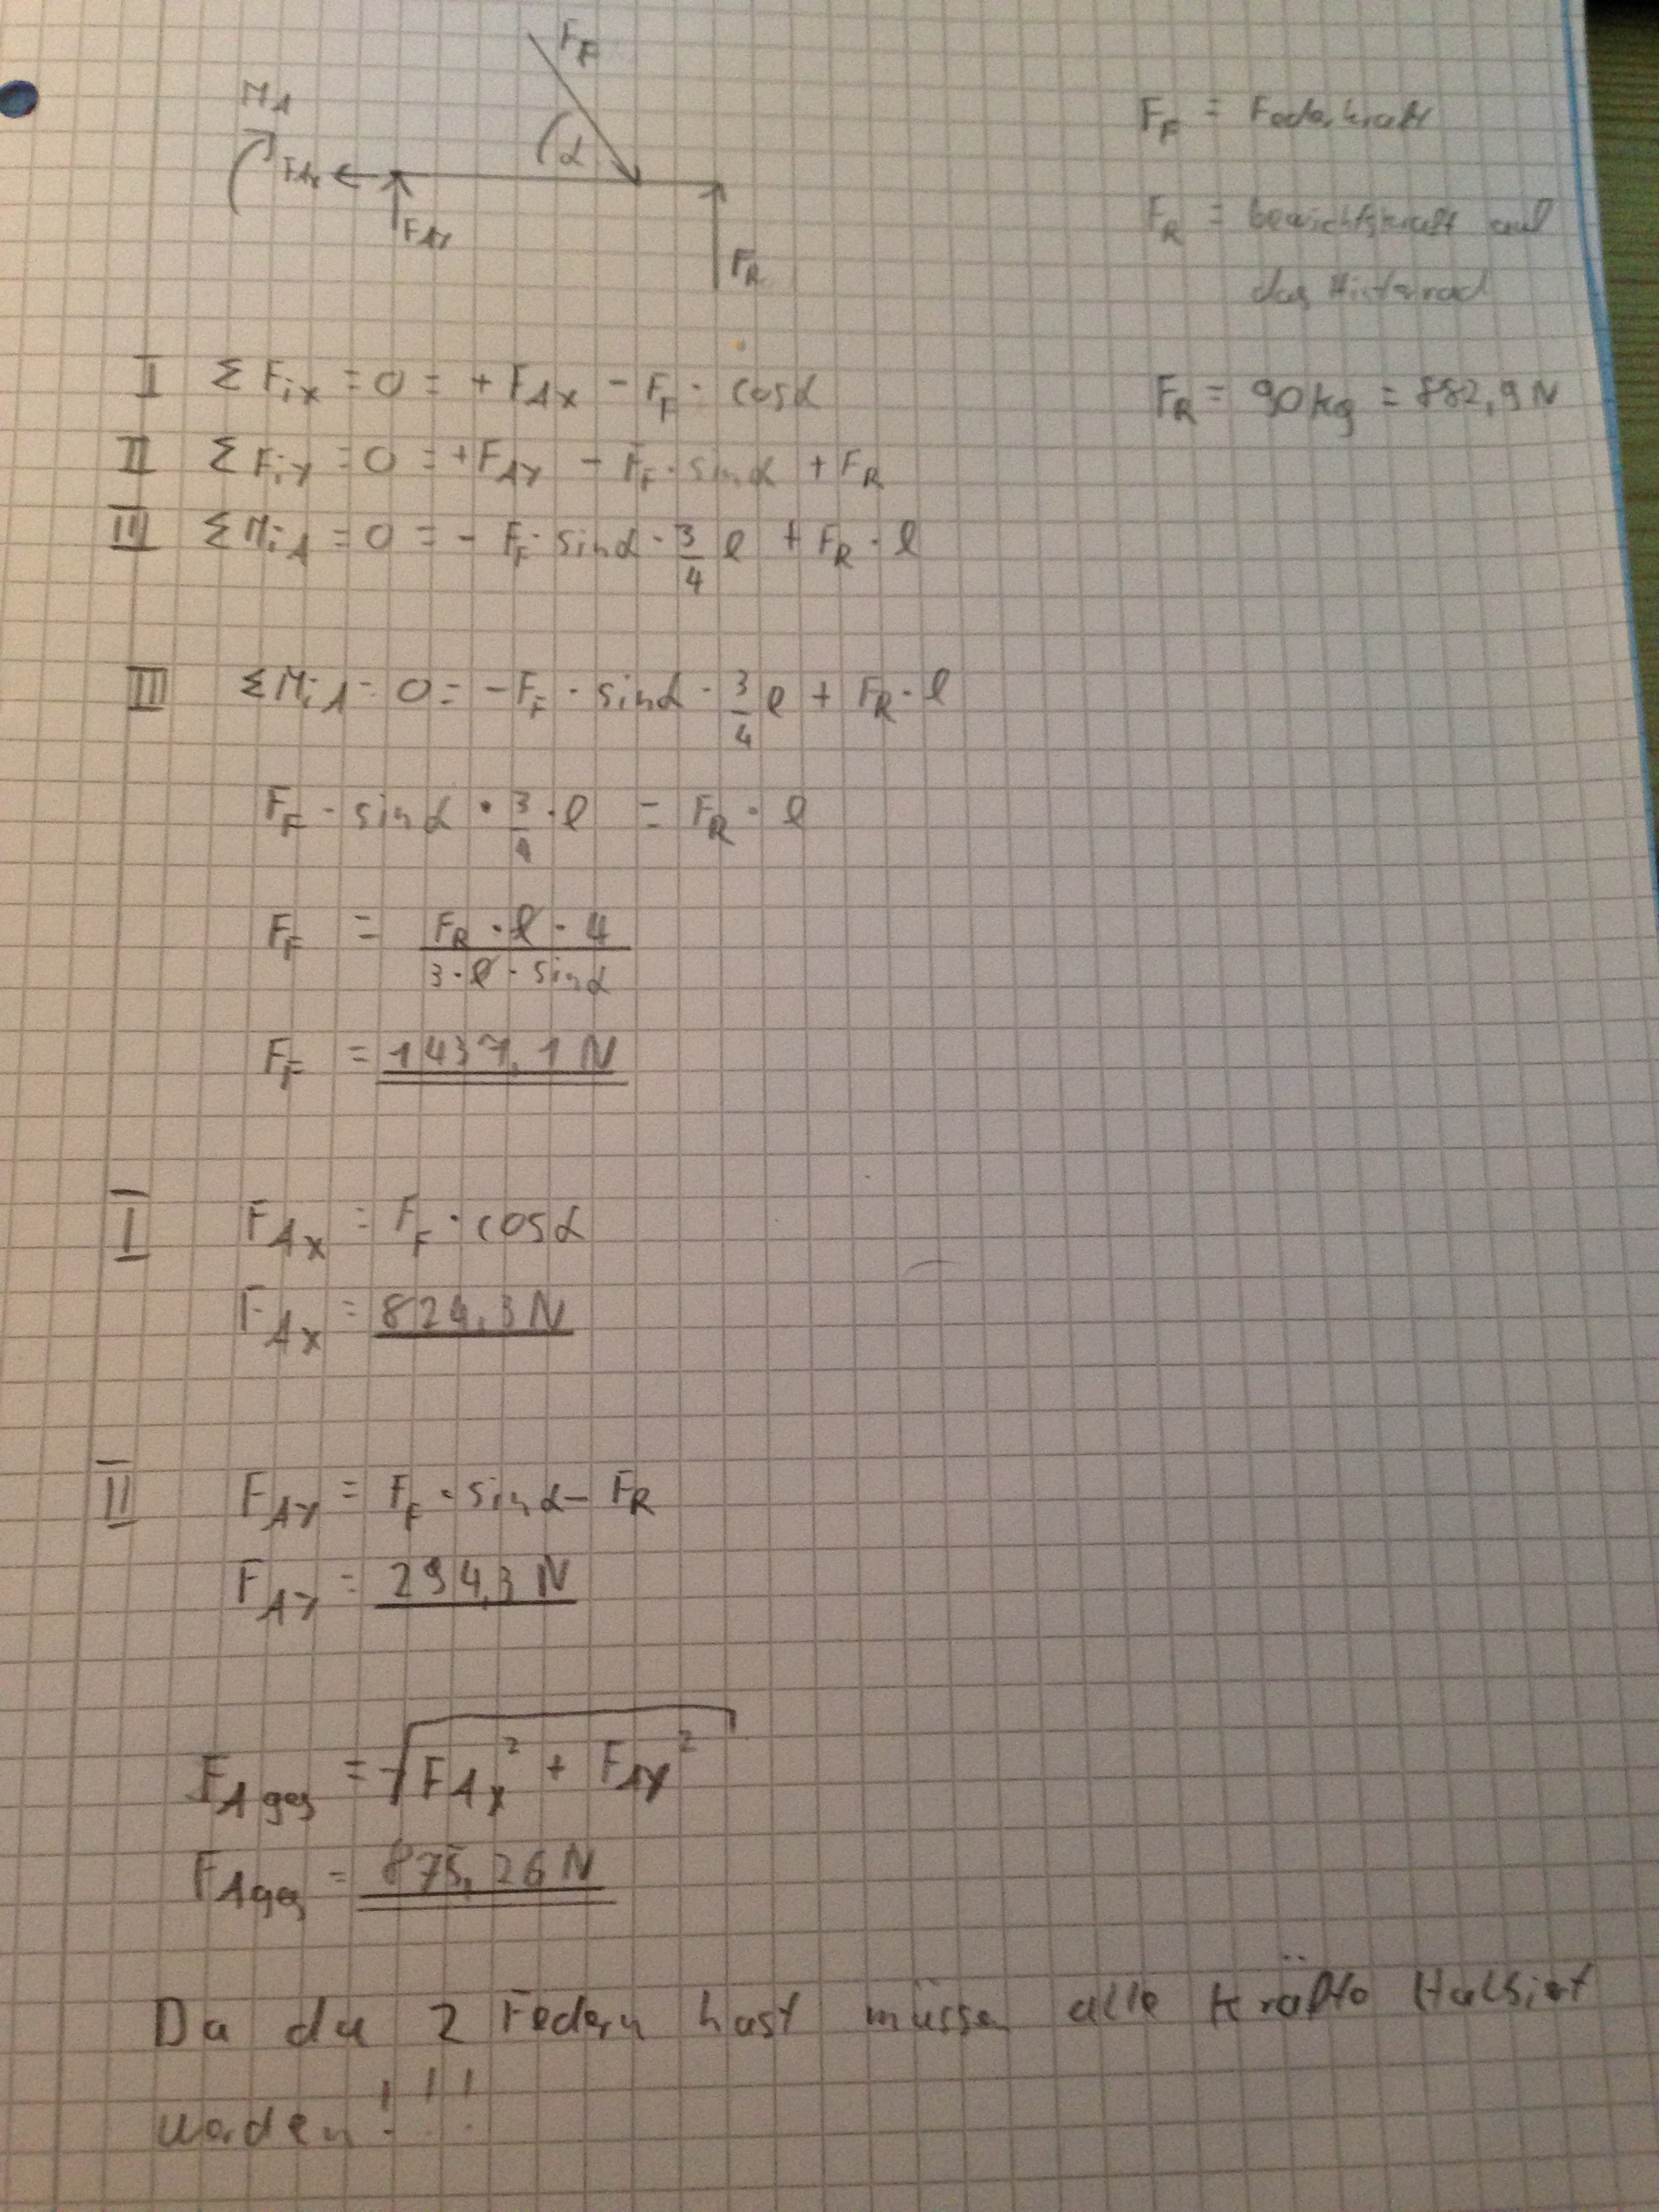 F_F
M_A
α
F_Ax
F_Ay
F_R
F_F = Federkraft
F_R = Gewichtskraft auf
das Hinterrad
I ΣF_ix = 0 = + F_Ax - F_F · cosα
F_R = 90kg = 882,9N
II ΣF_iy = 0 = +F_Ay - F_F · sinα + F_R
III ΣM_iA = 0 = - F_F · sinα · 3/4 l + F_R · l
III ΣM_iA = 0 = -F_F · sinα · 3/4 l + F_R · l
F_F · sinα · 3/4 · l = F_R · l
F_F = F_R · l · 4 / 3 · l · sinα
F_F = 1437,1 N
I F_Ax = F_F · cosα
F_Ax = 824,3 N
II F_Ay = F_F · sinα - F_R
F_Ay = 294,3 N
F_Ages = √F_Ax² + F_Ay²
F_Ages = 875,26 N
Da du 2 Federn hast müssen alle Kräfte Halbiert
werden!!!